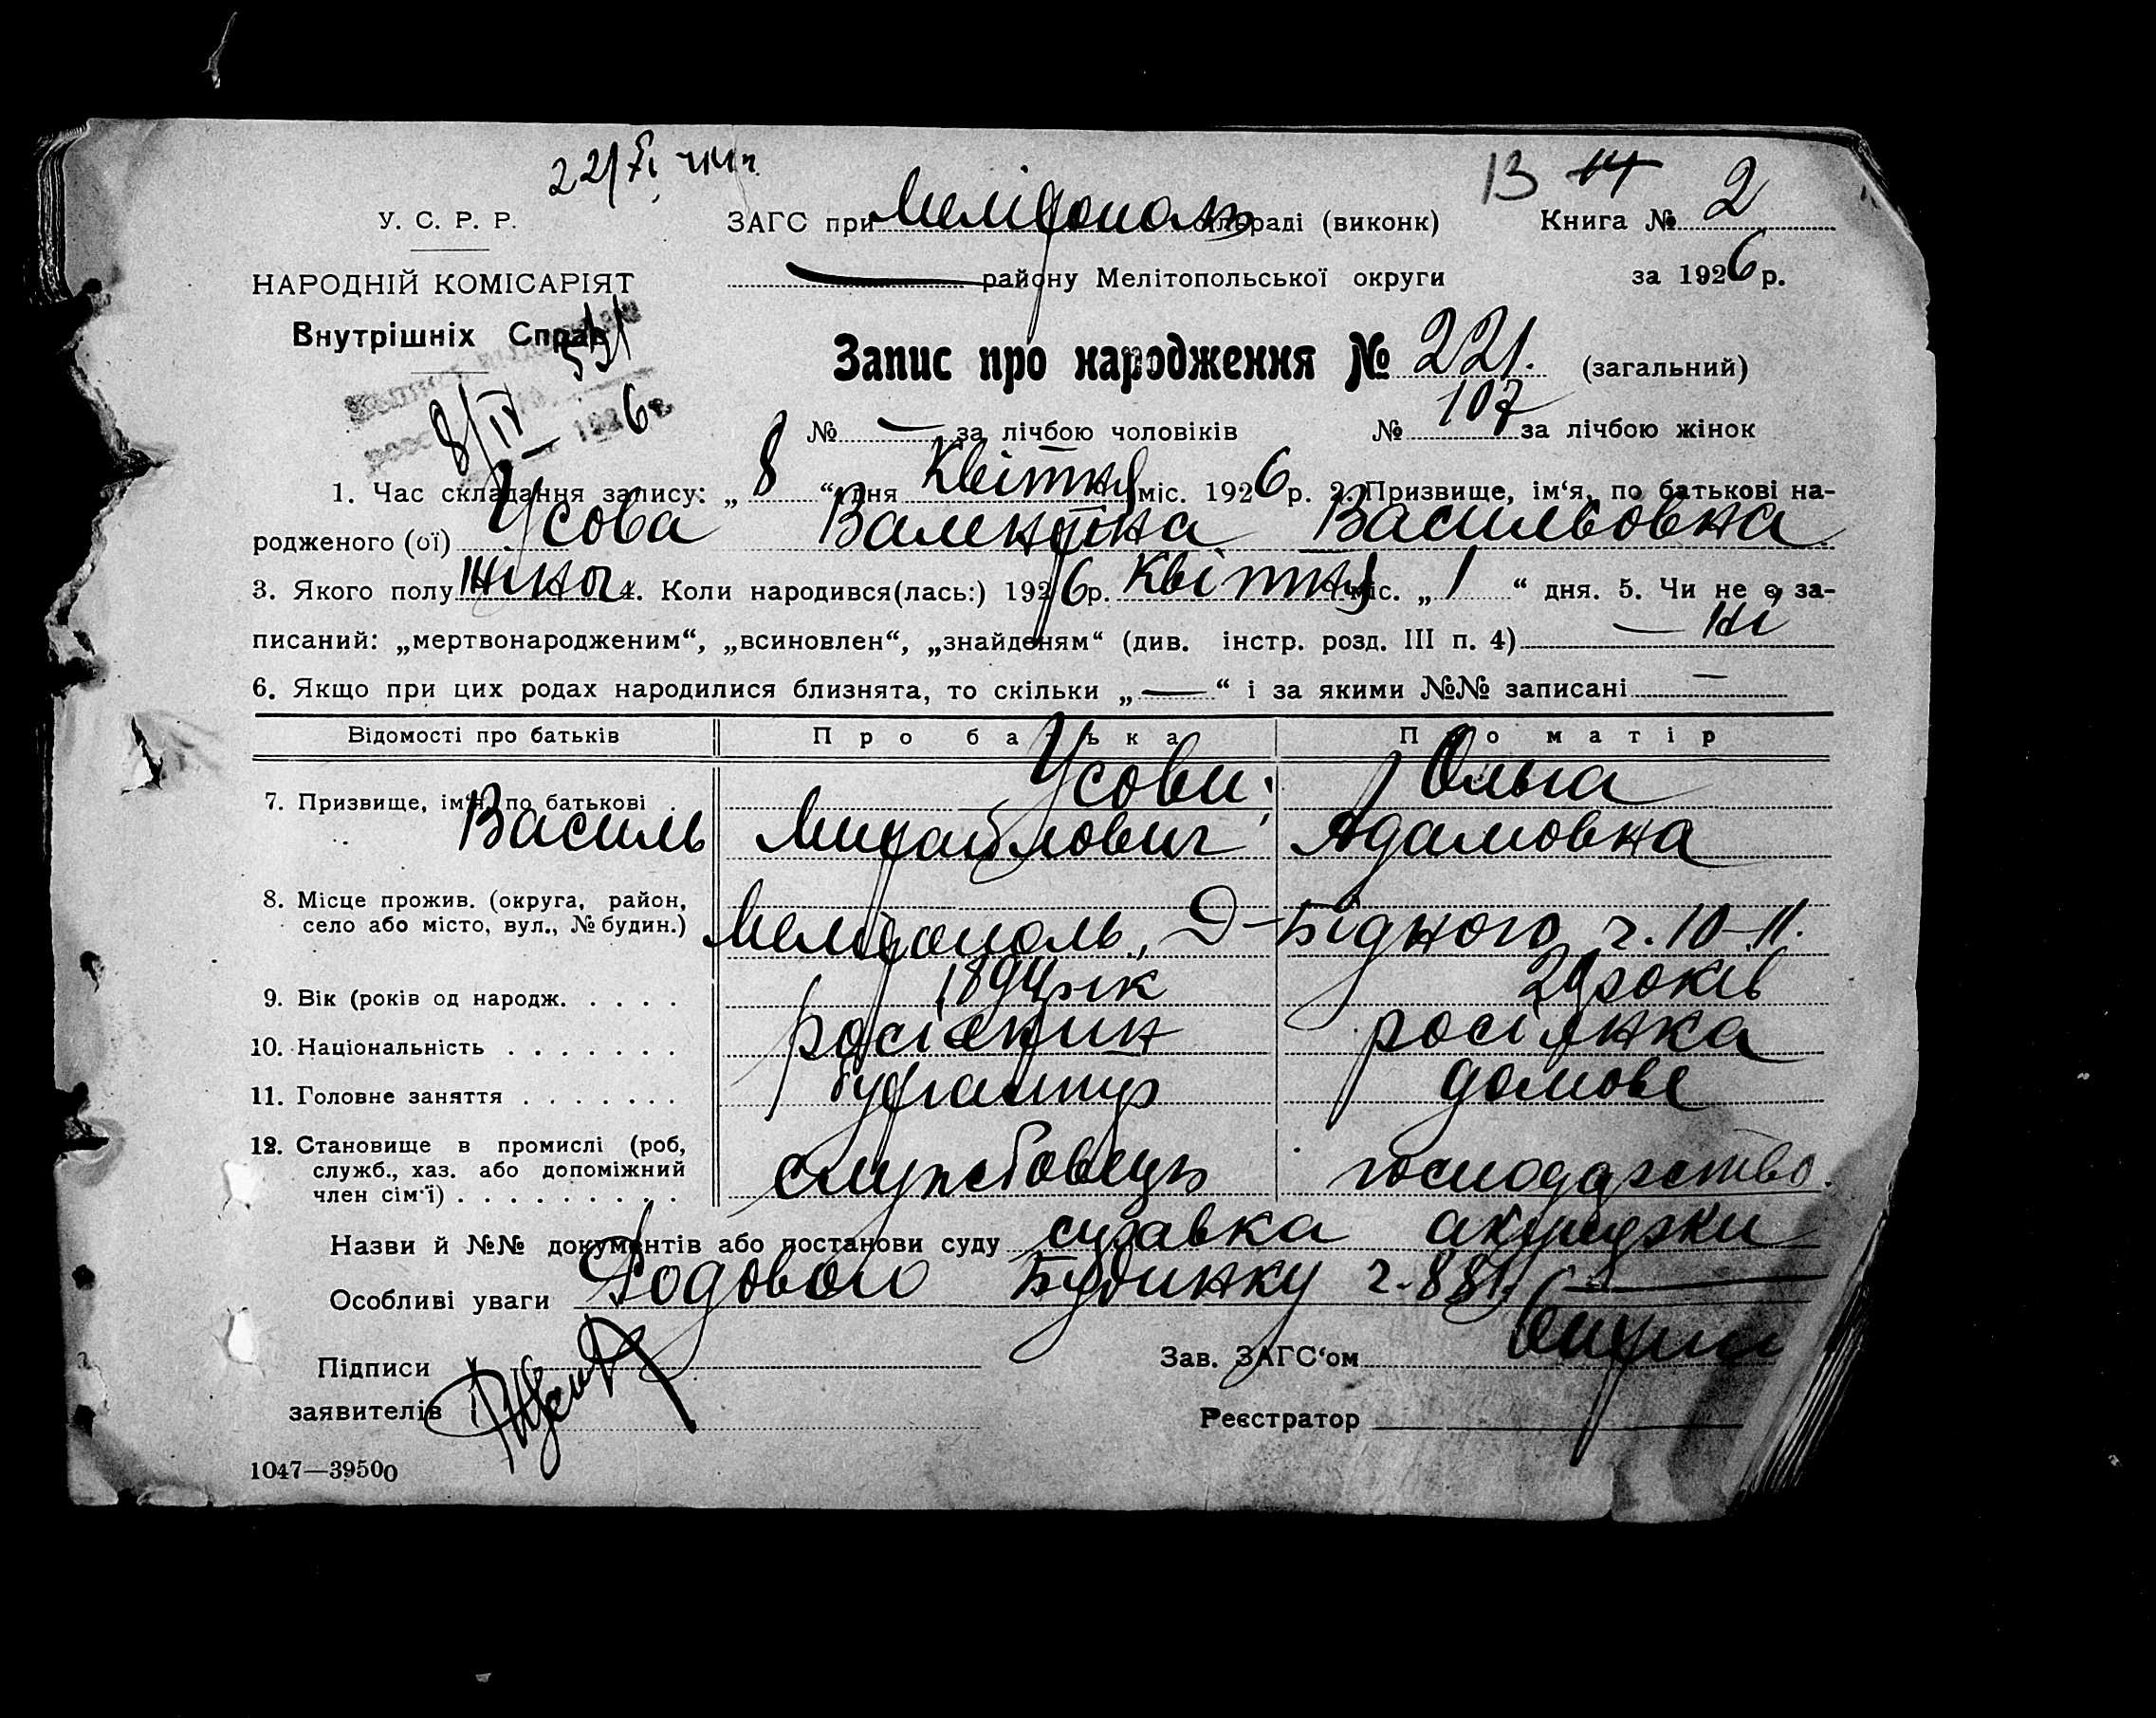 13 14
У. С. Р. Р.
ЗАГС при Мелітополь сільраді (виконк)
Книга № 2
НАРОДНІЙ КОМІСАРІЯТ
району Мелітопольської округи
за 1926 р.
Внутрішніх Справ
Запис про народження № 221. (загальний)
8/IV 1926 г.
№ — за лічбою чоловіків № 107 за лічбою жінок
1. Час складання запису: „ 8 “ дня Квітня міс. 1926 р. 2. Призвище, ім‘я, по батькові на-
родженого (ої) Усова Валентина Васильовна
3. Якого полу жіноч. 4. Коли народився(лась:) 1926 р. Квітня міс. „ 1 “ дня. 5. Чи не є за-
писаний: „мертвонародженим“, „всиновлен“, „знайденям“ (див. інстр. розд. III п. 4) — Ні
6. Якщо при цих родах народилися близнята, то скільки „ — “ і за якими №№ записані —
Відомості про батьків Про батька Про матір
7. Призвище, ім‘я, по батькові Усови: Ольга
Василь Михайлович Адамовна
8. Місце прожив. (округа, район,
село або місто, вул., № будин.) Мелітополь, Д-Бідного ч. 10-11.
9. Вік (років од народж. 1894 рік 29 років
10. Національність росіянин росіянка
11. Головне заняття бухгалтер домове
12. Становище в промислі (роб,
служб., хаз. або допоміжний
член сім‘ї) службовець господарство.
Назви й №№ документів або постанови суду справка акушерки
Особливі уваги Родового Будинку ч. 881
Підписи
Зав. ЗАГС‘ом
заявителів
Реєстратор
1047—39500